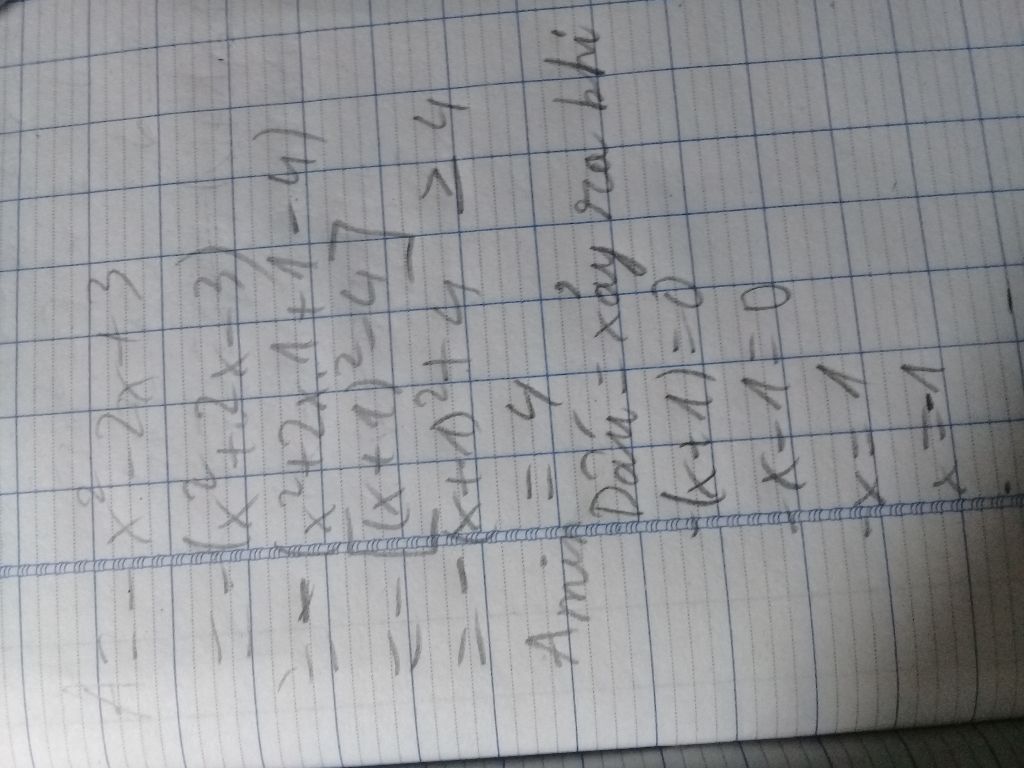 A = - x² - 2x + 3
= - (x² + 2x - 3)
= - (x² + 2x·1 + 1 - 4)
= - [(x + 1)² - 4]
= - (x + 1)² + 4 ≥ 4
Amin = 4
Dấu = xảy ra khi
- (x + 1) = 0
- x - 1 = 0
- x = 1
x = -1